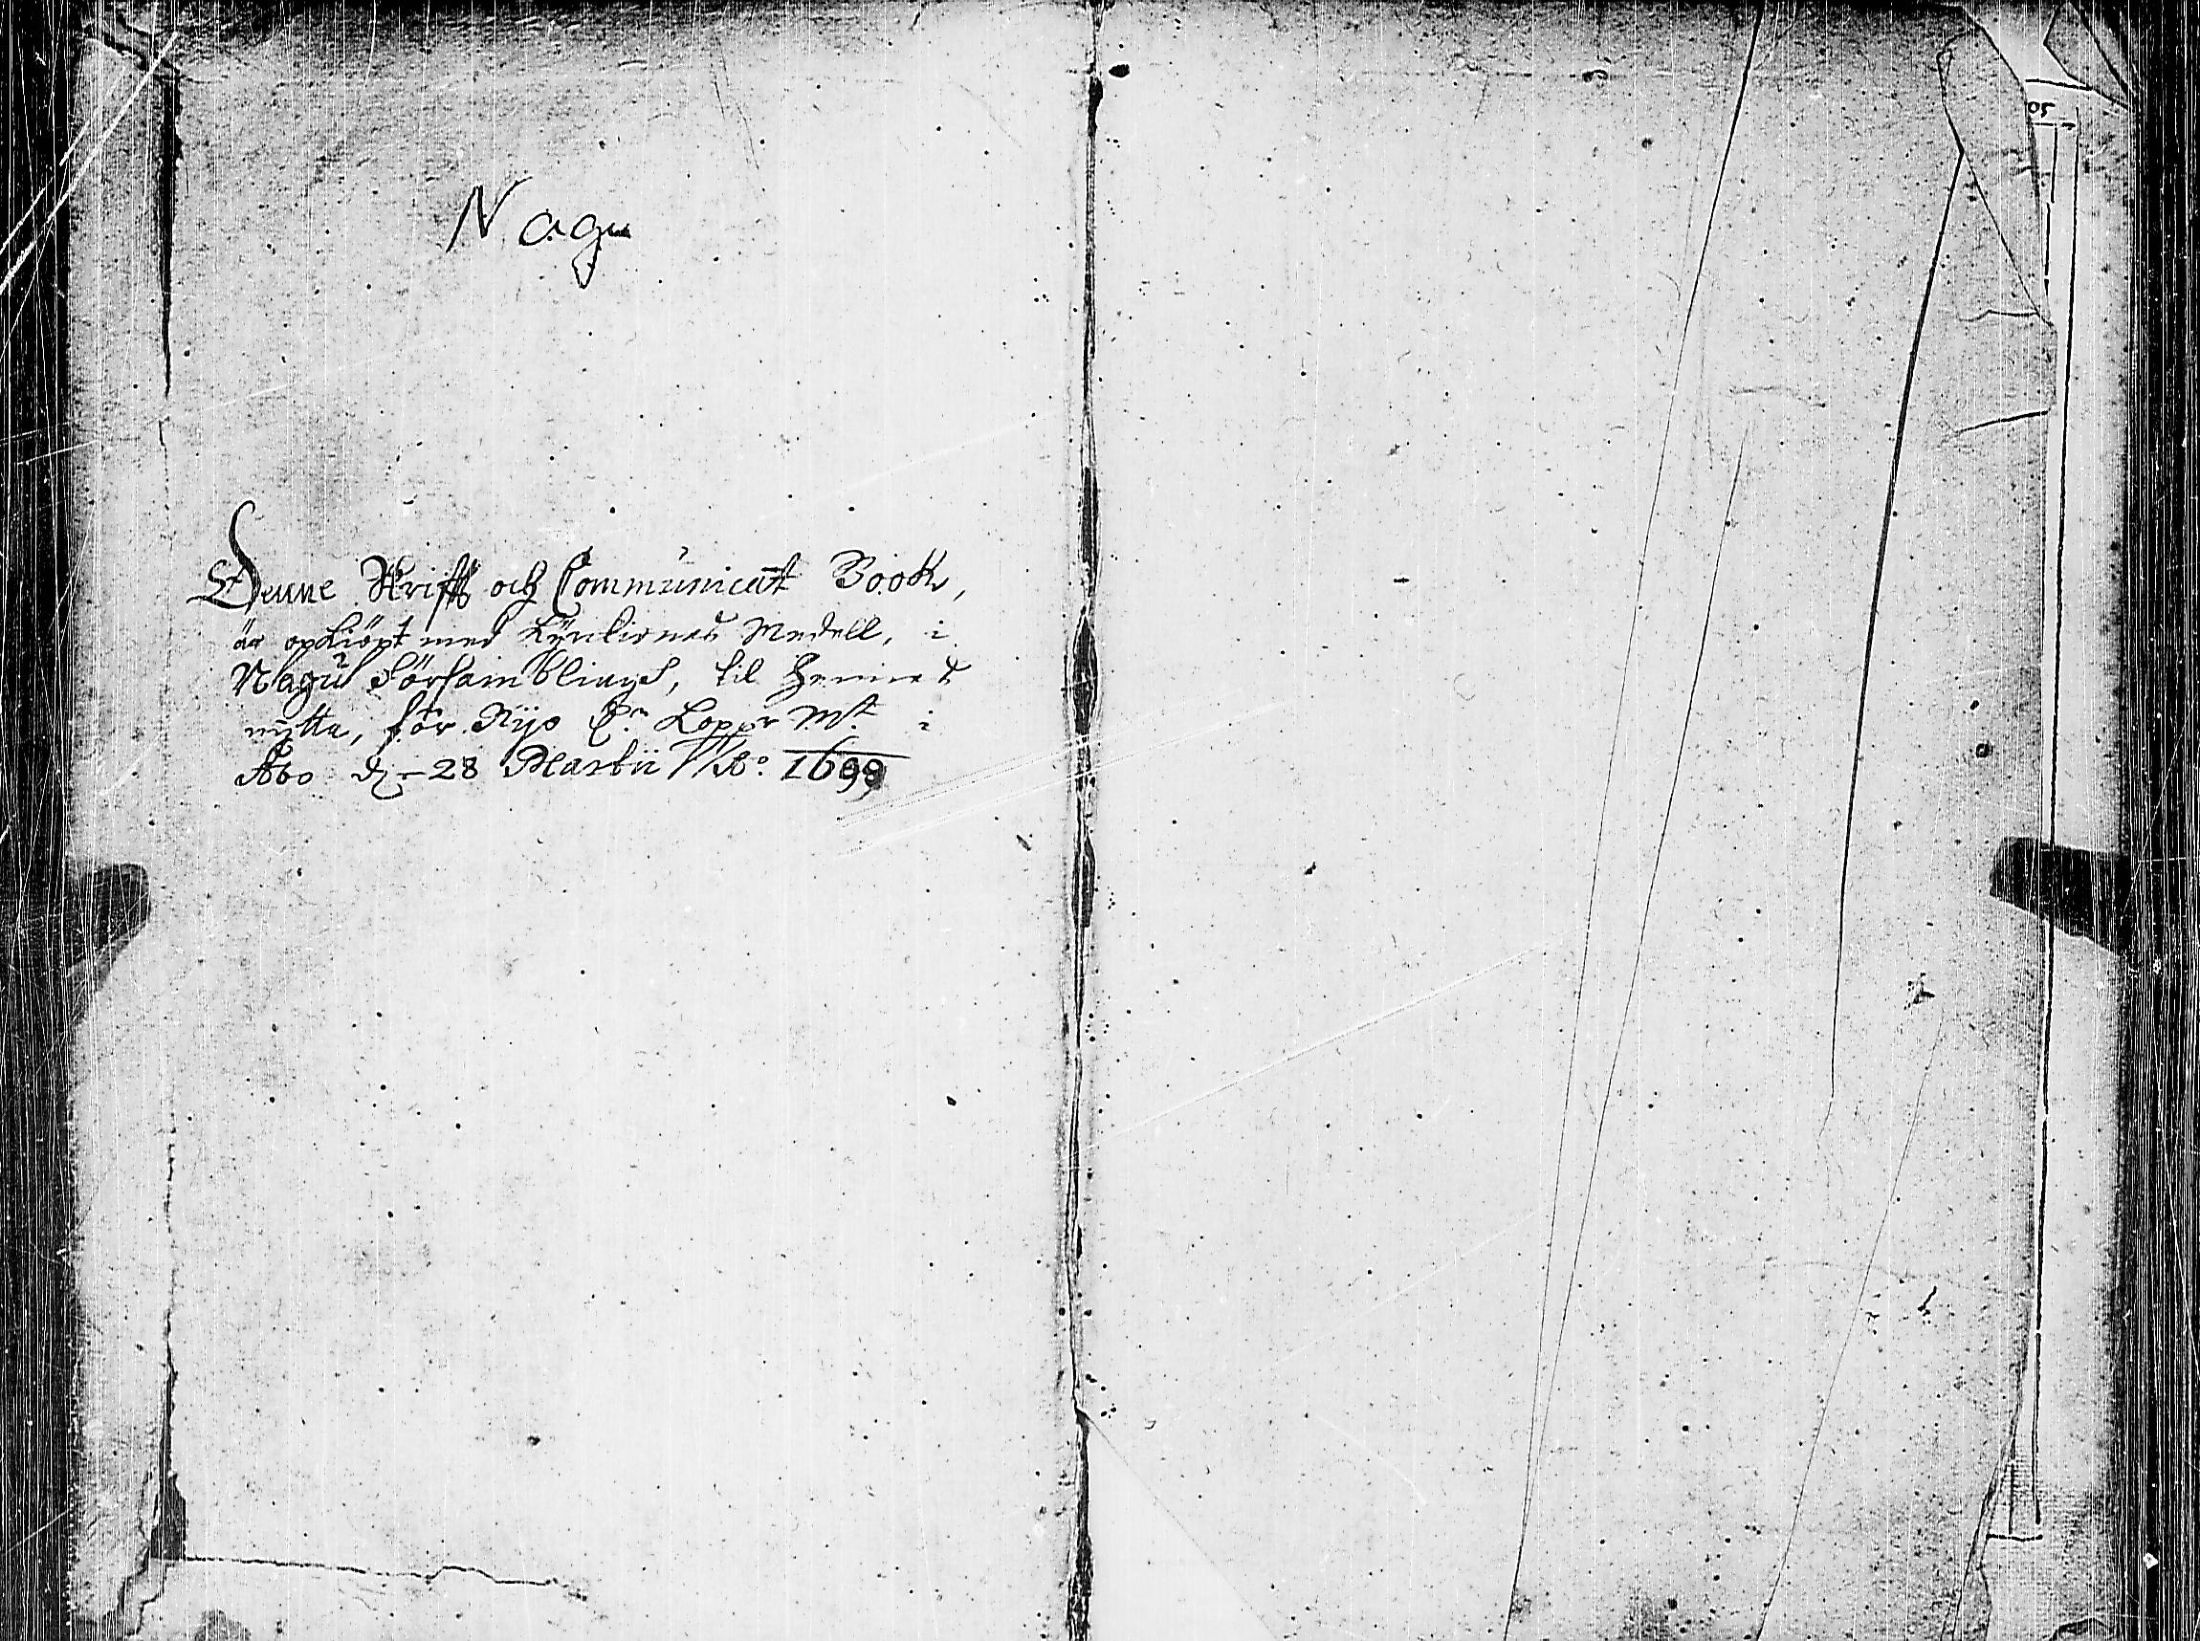 Nagu
Denne Skrifft och Communicant Book,
är opkiöpt med Kyrkiones Medell, i
Nagu Församblingh, til hennes
nytta, för Nijo D:r Kopp:r M:t i
Åbo d. 28 Martii A:o 1699